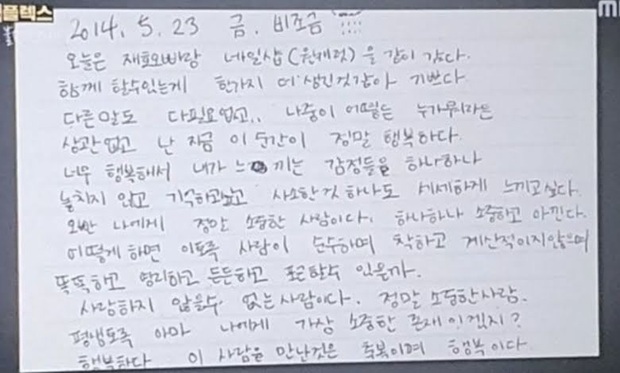 플렉스
M
2014. 5. 23 금. 비조금
오늘은 재효오빠랑 네일샵(원캐럿)을 같이 갔다.
함께 할수있는게 한가지 더 생긴것같아 기쁘다
다른말도 다필요없고.. 나중이 어떻든 누가뭐라든
상관없고 난 지금 이순간이 정말 행복하다.
너무 행복해서 내가 느끼는 감정들을 하나하나
놓치지 않고 기억하고싶고 사소한것 하나도 세세하게 느끼고싶다.
오빤 나에게 정말 소중한 사람이다. 하나하나 소중하고 아낀다.
어떻게 하면 이토록 사람이 순수하며 착하고 계산적이지않으며
똑똑하고 영리하고 든든하고 포근할수 있을까.
사랑하지 않을수 없는사람이다. 정말 소중한사람.
평생토록 아마 나에게 가장 소중한 존재이겠지?
행복하다 이 사람을 만난것은 축복이며 행복이다.